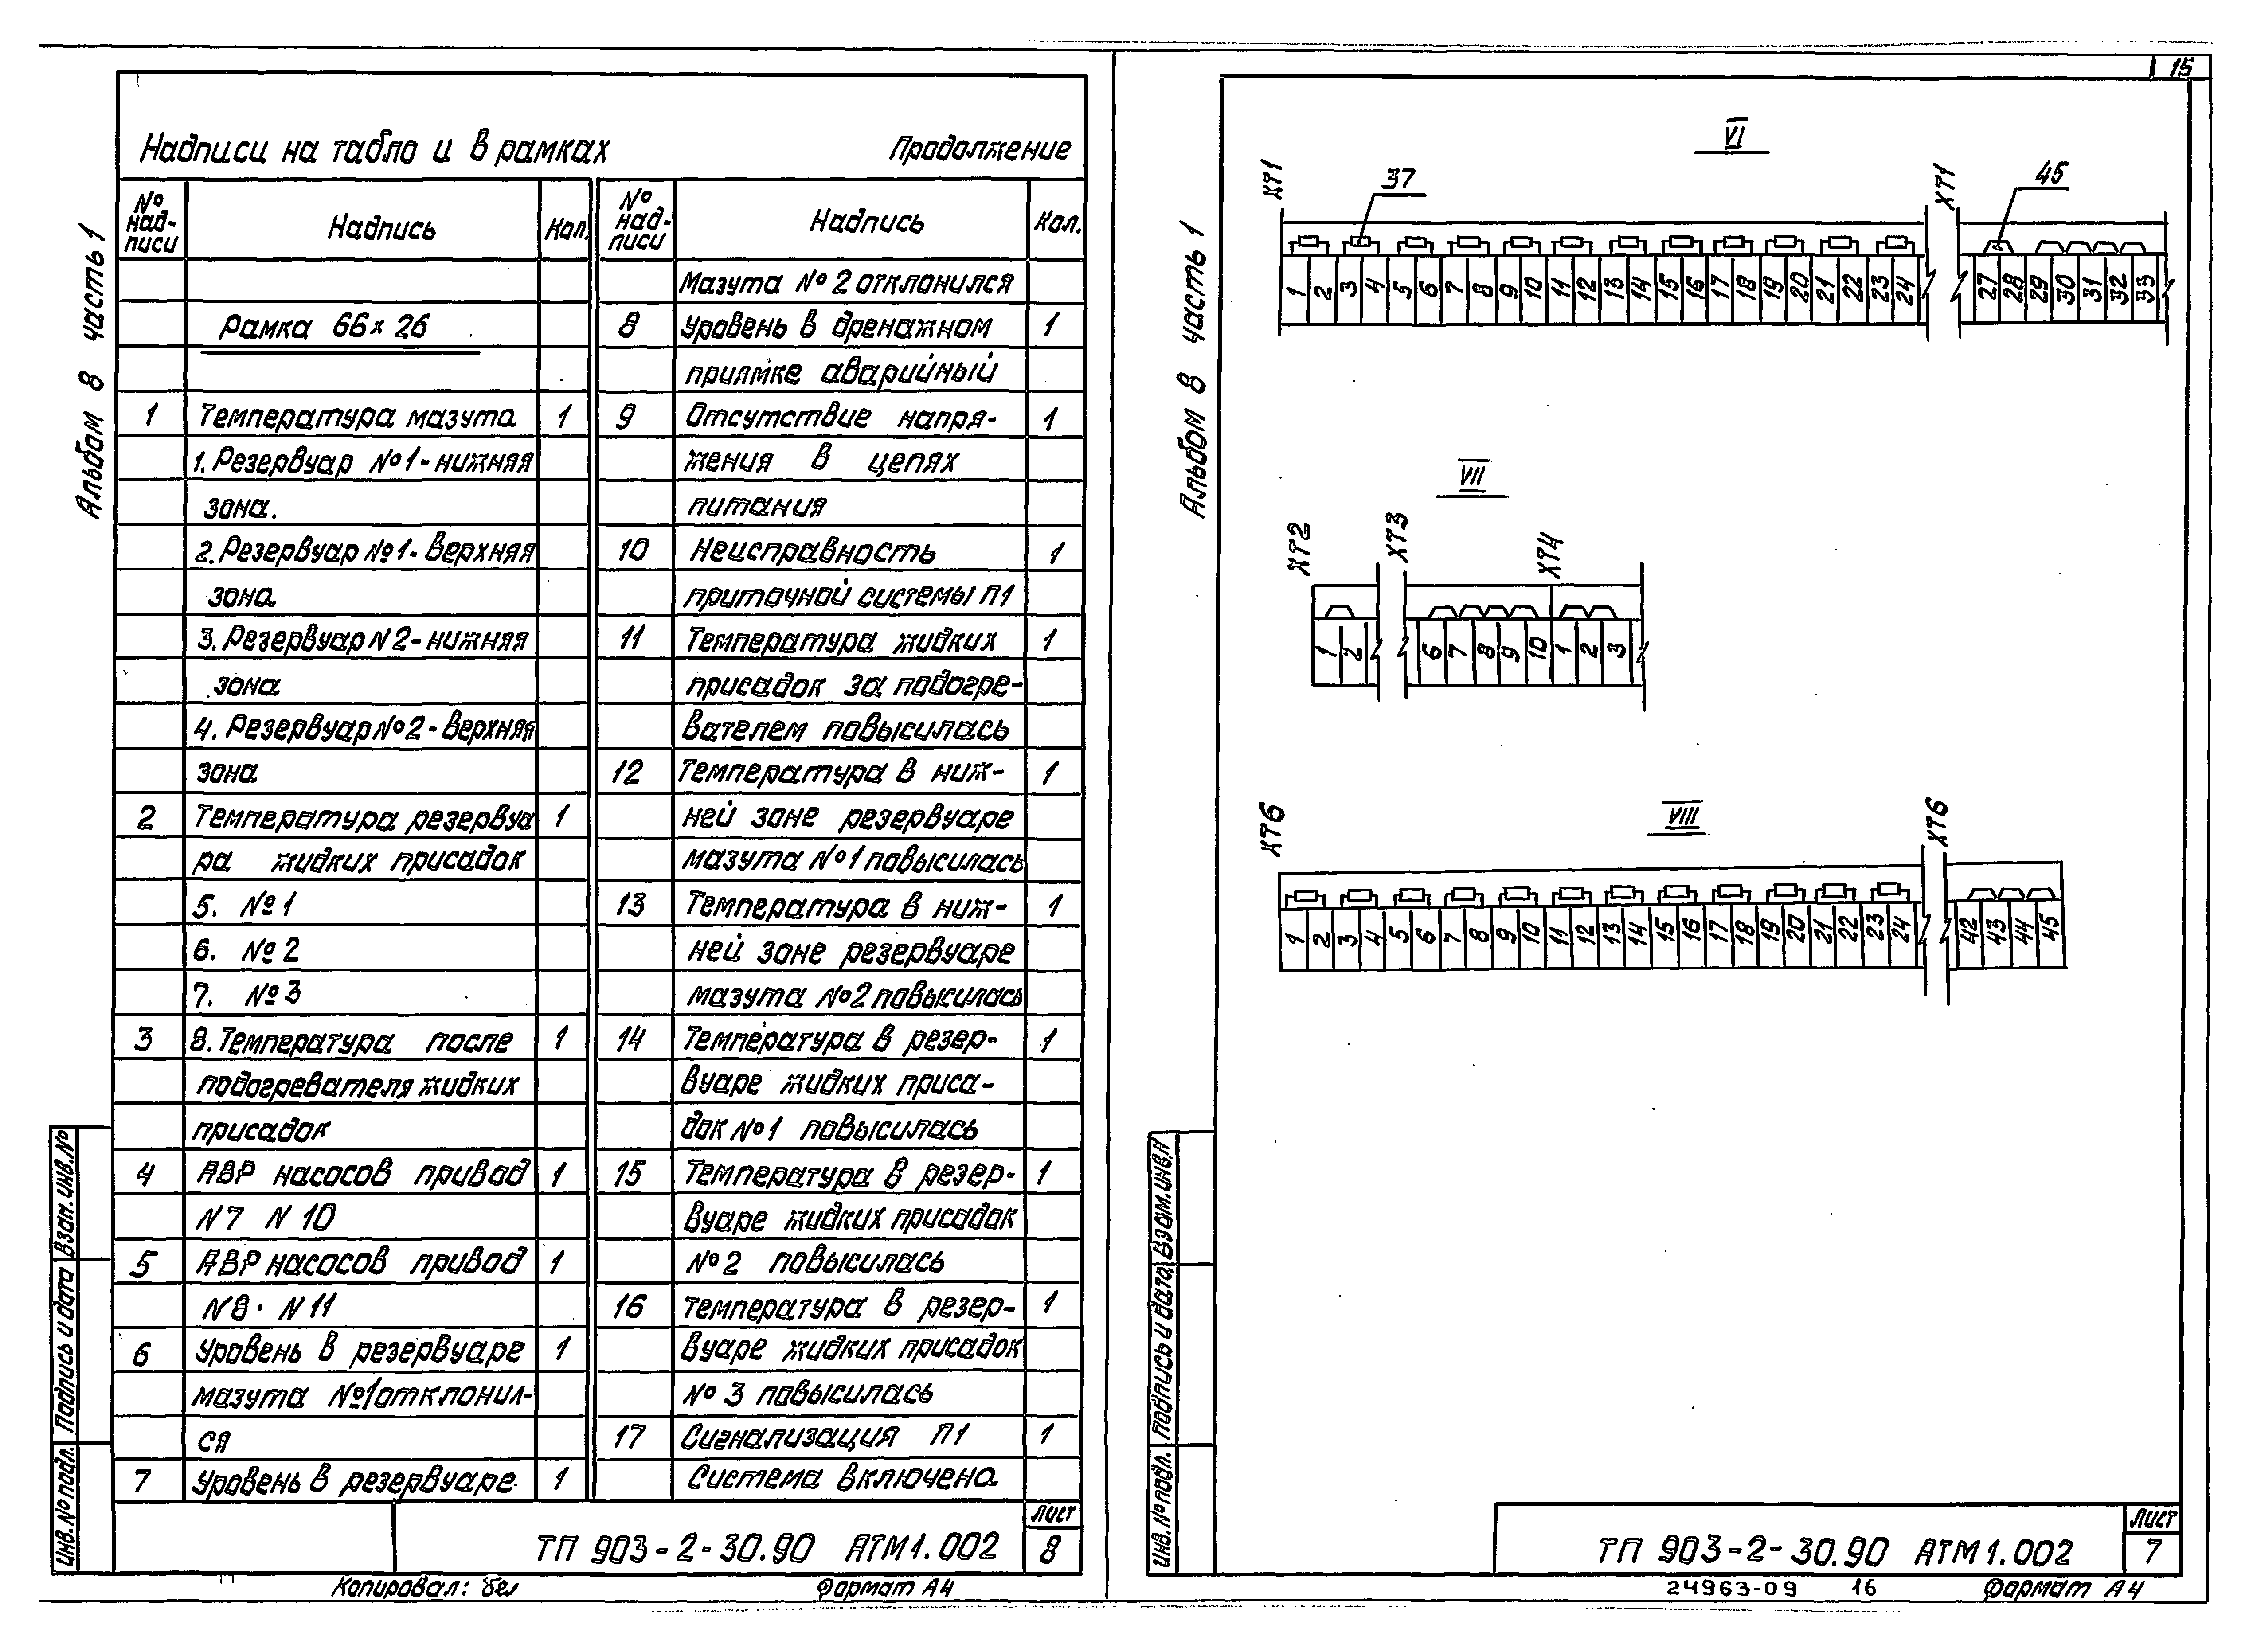 Надписи на табло и в рамках Продолжение
№ над-писи Надпись Кол.
Рамка 66×26
1 Температура мазута 1
1. Резервуар №1-нижняя
зона.
2. Резервуар №1-верхняя
зона
3. Резервуар N2-нижняя
зона
4. Резервуар №2-верхняя
зона
2 Температура резервуа 1
ра жидких присадок
5. №1
6. №2
7. №3
3 8. Температура после 1
подогревателя жидких
присадок
4 АВР насосов привод 1
N7 N10
5 АВР насосов привод 1
N8. N11
6 Уровень в резервуаре 1
мазута №1 отклонил-
ся
7 Уровень в резервуаре 1
№ над-писи Надпись Кол.
Мазута №2 отклонился
8 Уровень в дренажном 1
приямке аварийный
9 Отсутствие напря- 1
жения в цепях
питания
10 Неисправность 1
приточной системы П1
11 Температура жидких 1
присадок за подогре-
вателем повысилась
12 Температура в ниж- 1
ней зоне резервуаре
мазута №1 повысилась
13 Температура в ниж- 1
ней зоне резервуаре
мазута №2 повысилась
14 Температура в резер- 1
вуаре жидких приса-
док №1 повысилась
15 Температура в резер- 1
вуаре жидких присадок
№2 повысилась
16 температура в резер- 1
вуаре жидких присадок
№3 повысилась
17 Сигнализация П1 1
Система включена
ТП 903-2-30.90 АТМ1.002
Лист
8
Копировал: Бел Формат А4
Альбом 8 часть 1
Инв. № подл. Подпись и дата Взам. инв. №
15
VI
ХТ1 37 ХТ1 45
1 2 3 4 5 6 7 8 9 10 11 12 13 14 15 16 17 18 19 20 21 22 23 24 27 28 29 30 31 32 33
VII
ХТ2 ХТ3 ХТ4
1 2 6 7 8 9 10 1 2 3
VIII
ХТ6 ХТ6
1 2 3 4 5 6 7 8 9 10 11 12 13 14 15 16 17 18 19 20 21 22 23 24 42 43 44 45
Альбом 8 часть 1
Инв. № подл. Подпись и дата Взам. инв. N
ТП 903-2-30.90 АТМ1.002
Лист
7
24963-09 16 Формат А4